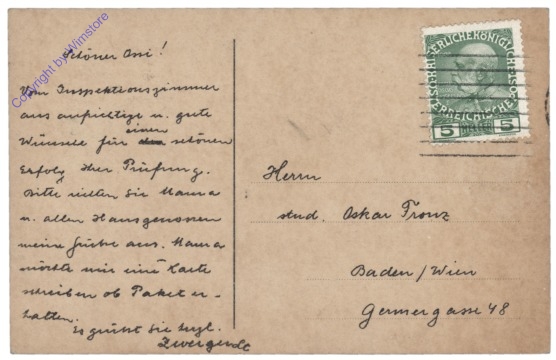 Copyright by Wimstore
Schöner Ossi!
Vom Inspektionszimmer
aus aufrichtige u. gute
Wünsche für einen schönen
Erfolg Ihrer Prüfung.
Bitte richten Sie Mama
u. allen Hausgenossen
meine Grüße aus. Mama
möchte mir eine Karte
schreiben ob Paket er-
halten.
Es grüßt Sie herzl.
KAISERLICHE KÖNIGLICHE ÖSTERREICHISCHE
5 HELLER 5
Herrn
stud. Oskar Tronz
Baden/Wien
Germergasse 48